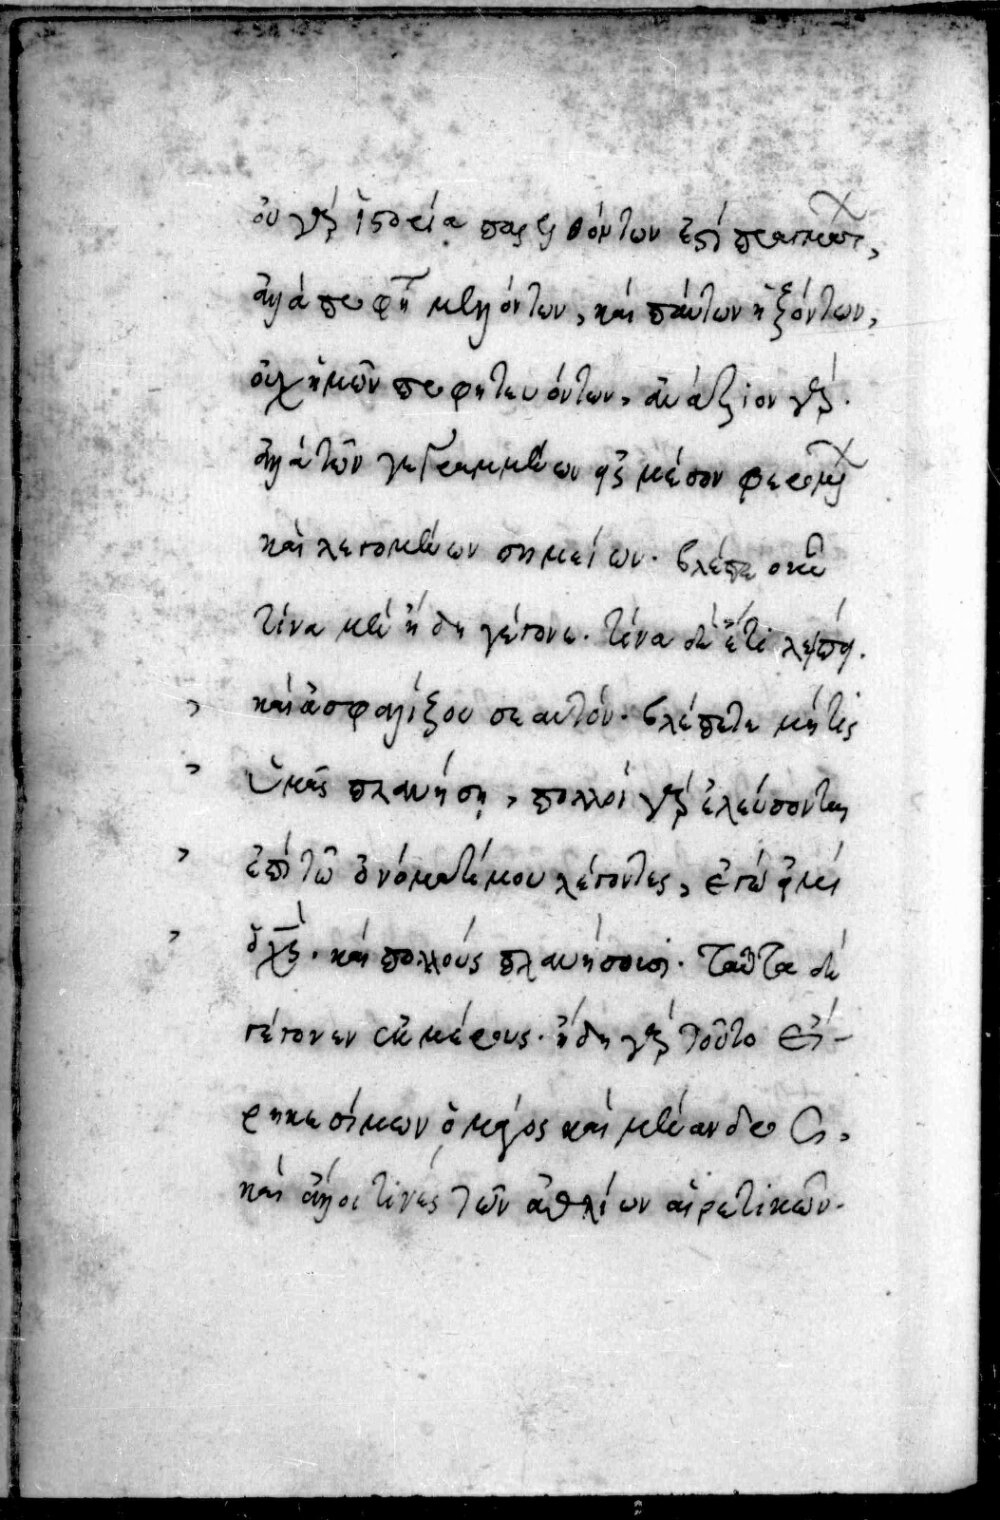 οὐ γὰρ ἱστορία παρελθόντων ἐστὶ πραγμάτων,
ἀλλὰ προφητεία μελλόντων, καὶ πάντως ἡξόντων,
οὐχ ἡμῶν προφητευόντων, ἀνάξιοι γάρ.
ἀλλὰ τῶν γεγραμμένων εἰς μέσον φερομένων
καὶ λεγομένων σημείων. βλέπε οὖν
τίνα μὲν ἤδη γέγονε. τίνα δὲ ἔτι λείπει.
καὶ ἀσφαλίζου σεαυτόν. βλέπετε μή τις
ὑμᾶς πλανήσῃ, πολλοὶ γὰρ ἐλεύσονται
ἐπὶ τῷ ὀνόματί μου λέγοντες, ἐγώ εἰμι
ὁ χς. καὶ πολλοὺς πλανήσουσι. ταῦτα δὲ
γέγονεν ἐκ μέρους. ἤδη γὰρ τοῦτο εἴ-
ρηκε σίμων ὁ μάγος καὶ μένανδρος,
καὶ ἄλλοι τινὲς τῶν ἀθέων αἱρετικῶν.